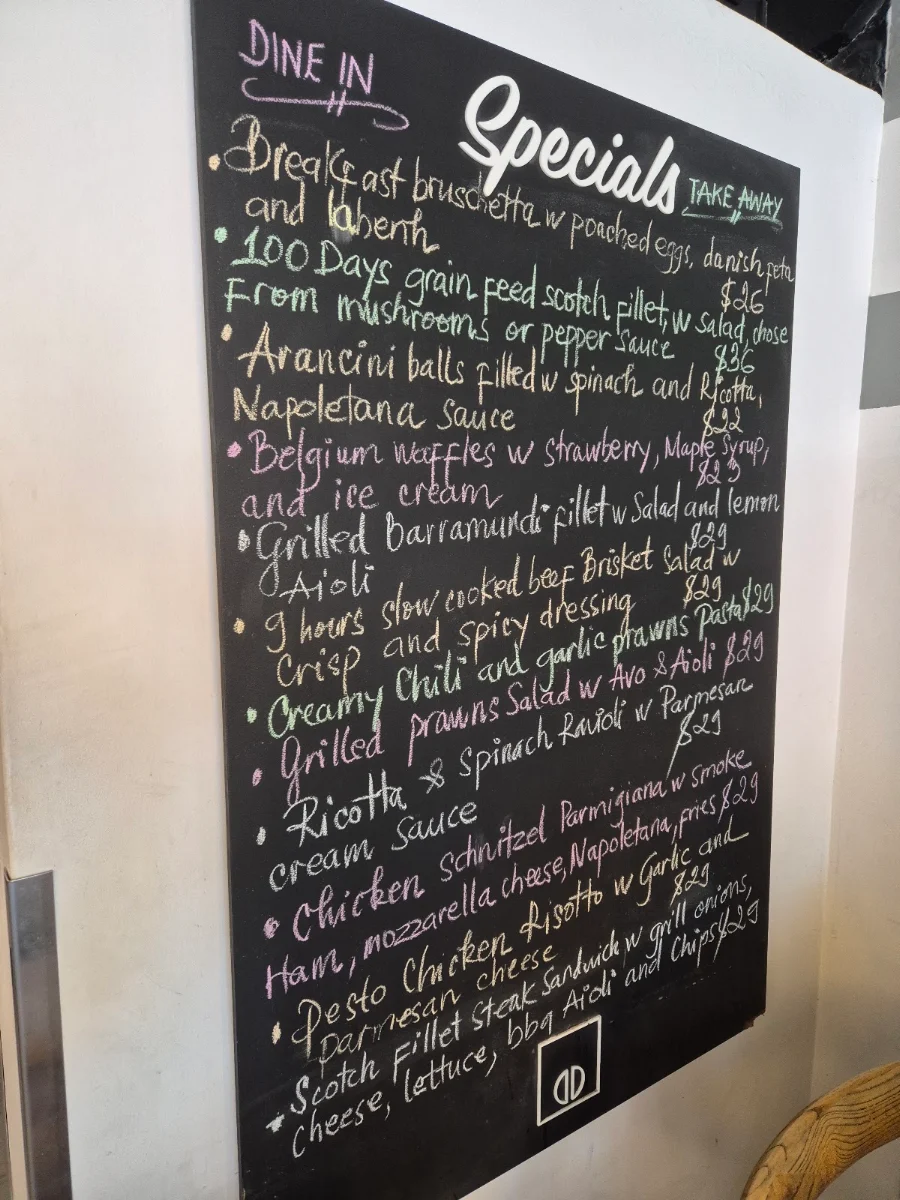 DINE IN
Specials
TAKE AWAY
• Breakfast bruschetta w poached eggs, danish feta
and labenh
$26
• 100 Days grain feed scotch fillet, w salad, chose
From mushrooms or pepper sauce $36
• Arancini balls filled w spinach and Ricotta,
Napoletana sauce $22
• Belgium waffles w strawberry, Maple Syrup,
and ice cream $23
• Grilled Barramundi fillet w Salad and lemon
Aioli $29
• 9 hours slow cooked beef Brisket Salad w
Crisp and spicy dressing $29
• Creamy Chili and garlic prawns Pasta $29
• Grilled prawns Salad w Avo & Aioli $29
• Ricotta & Spinach Ravioli w Parmesan
cream sauce $29
• Chicken schnitzel Parmigiana w smoke
Ham, mozzarella cheese, Napoletana, fries $29
• Pesto Chicken Risotto w Garlic and
Parmesan cheese $29
• Scotch Fillet Steak Sandwich w grill onions,
cheese, lettuce, bbq Aioli and Chips $29